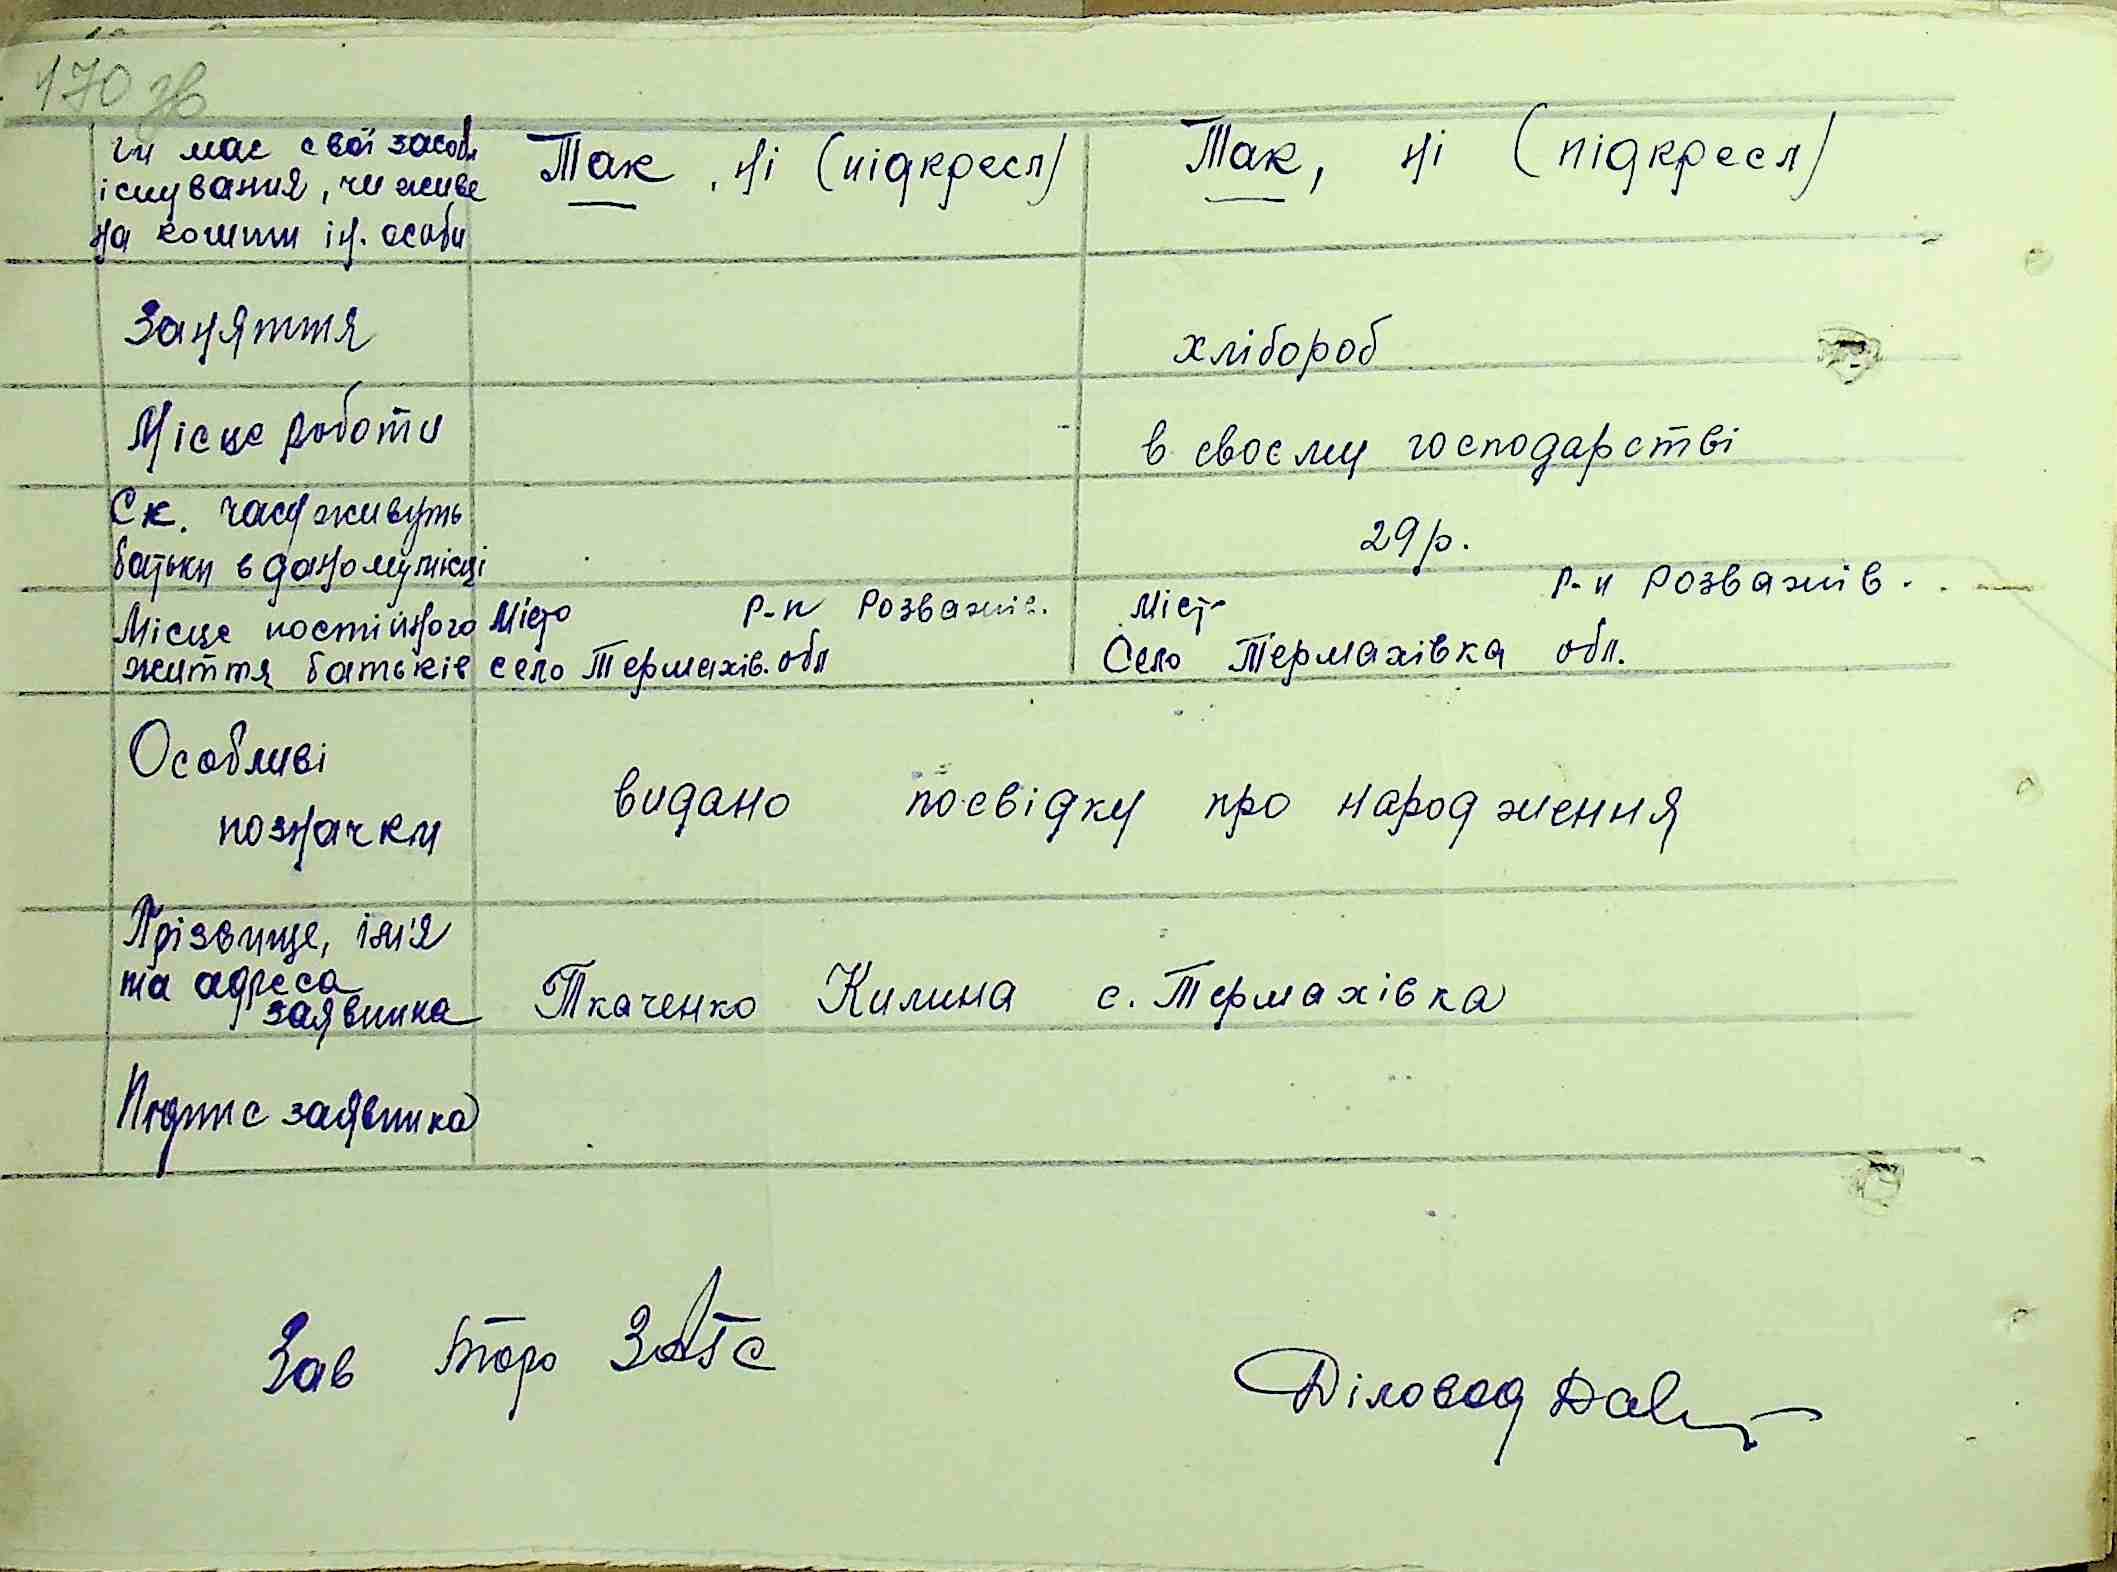 170 зв
чи має свої засоби
існування, чи живе
на кошти ін. особи
Так, ні (підкресл)
Так, ні (підкресл)
Заняття
хлібороб
Місце роботи
в своєму господарстві
Ск. часу живуть
батьки в даному місці
29 р.
Місце постійного
життя батьків
Місто р-н Розважів.
село Термахів. обл
Міст р-н Розважів.
Село Термахівка обл.
Особливі
позначки
видано посвідку про народження
Прізвище, ім'я
та адреса
заявника
Ткаченко Килина с. Термахівка
Підпис заявника
Зав Бюро ЗАГС
Діловод